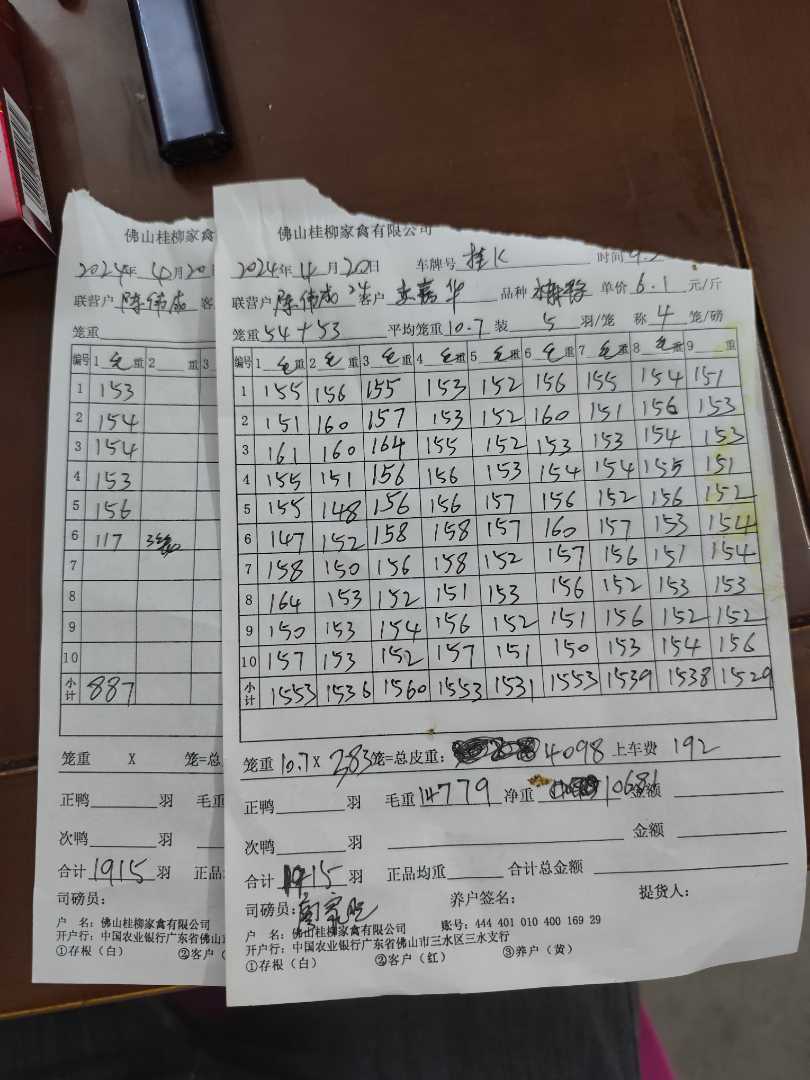 佛山桂柳家禽
2024年4月20日
联营户 陈伟成 客
笼重
编号 1 毛重 2 重 3
1 153
2 154
3 154
4 153
5 156
6 117 3笼
7
8
9
10
小计 887
笼重 X 笼=总
正鸭 羽 毛重
次鸭 羽
合计 1915 羽 正品
司磅员：
户 名：佛山桂柳家禽有限公司
开户行：中国农业银行广东省佛山
①存根（白） ②客户（
佛山桂柳家禽有限公司
2024年4月20日 车牌号 桂K 时间
联营户 陈伟成 24 客户 嘉华 品种 单价 6.1 元/斤
笼重 54+53 平均笼重 10.7 装 5 羽/笼 称 4 笼/磅
编号 1 毛重 2 毛重 3 毛重 4 毛重 5 毛重 6 毛重 7 毛重 8 毛重 9 重
1 155 156 155 153 152 156 155 154 151
2 151 160 157 153 152 160 151 156 153
3 161 160 164 155 152 153 153 154 153
4 155 151 156 156 153 154 154 155 151
5 155 148 156 156 157 156 152 156 152
6 147 152 158 158 157 160 157 153 154
7 158 150 156 158 152 157 156 151 154
8 164 153 152 151 153 156 152 153 153
9 150 153 154 156 152 151 156 152 152
10 157 153 152 157 151 150 153 154 156
小计 1553 1536 1560 1553 1531 1553 1539 1538 1529
笼重 10.7 X 283 笼=总皮重： 4098 上车费 192
正鸭 羽 毛重 14779 净重 10681 金额
次鸭 羽 金额
合计 1915 羽 正品均重 合计总金额
司磅员： 养户签名： 提货人：
户 名：佛山桂柳家禽有限公司 账号：444 401 010 400 169 29
开户行：中国农业银行广东省佛山市三水区三水支行
①存根（白） ②客户（红） ③养户（黄）